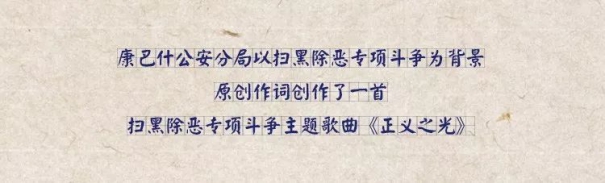 康巴什公安分局以扫黑除恶专项斗争为背景
原创作词创作了一首
扫黑除恶专项斗争主题歌曲《正义之光》